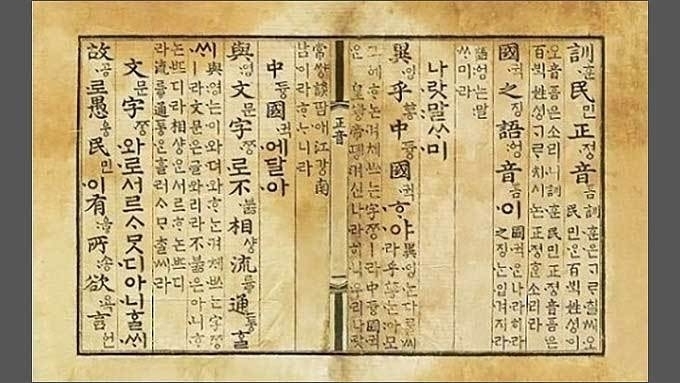 訓훈民민正졍音ᅙᅳᆷ
訓훈은ᄀᆞᄅᆞ칠씨오
民민ᄋᆞᆫ百ᄇᆡᆨ姓셩이
오音ᅙᅳᆷ은소리니訓훈民민正졍音ᅙᅳᆷ은
百ᄇᆡᆨ姓셩ᄀᆞᄅᆞ치시논正졍ᄒᆞᆫ소리라
國귁之징語엉音ᅙᅳᆷ이
國귁ᄋᆞᆫ나라히라
之징ᄂᆞᆫ입겨지라
語엉는말
ᄊᆞ미라
나랏말ᄊᆞ미
異잉乎ᅘᅩᆼ中듀ᇰ國귁ᄒᆞ야
異잉ᄂᆞᆫ다ᄅᆞᆯ씨
라乎ᅘᅩᆼᄂᆞᆫ아모
그ᅌᅦᄒᆞ논겨체ᄡᅳ는字ᄍᆞᆼㅣ라中듀ᇰ國귁
은皇ᅘᅪᇰ帝뎽겨신나라히니우리나랏
正音
常썅談땀애江강南
남이라ᄒᆞᄂᆞ니라
中듀ᇰ國귁에달아
與영文문字ᄍᆞᆼ로不부ᇙ相샤ᇰ流류ᇢ通토ᇰᄒᆞᆯ
씨與영는이와뎌와ᄒᆞ는겨체ᄡᅳ는字ᄍᆞᆼ
ㅣ라文문은글와리라不부ᇙ은아니ᄒᆞ
논ᄠᅳ디라相샤ᇰᄋᆞᆫ서르ᄒᆞ논ᄠᅳ디
라流류ᇢ通토ᇰᄋᆞᆫ흘러ᄉᆞᄆᆞᄎᆞᆯ씨라
文문字ᄍᆞᆼ와로서르ᄉᆞᄆᆞᆺ디아니ᄒᆞᆯᄊᆡ
故공로愚웅民민이有우ᇢ所송欲욕言언